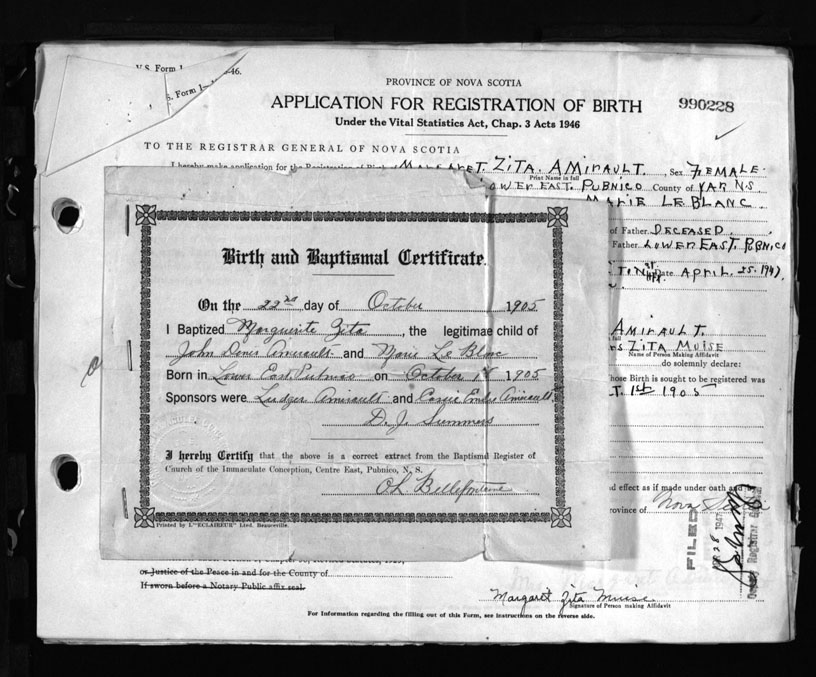 V.S. Form 1
-46.
S. Form 1-
PROVINCE OF NOVA SCOTIA
APPLICATION FOR REGISTRATION OF BIRTH
990228
Under the Vital Statistics Act, Chap. 3 Acts 1946
TO THE REGISTRAR GENERAL OF NOVA SCOTIA
I hereby make application for the Registration of Birth of MARGARET. ZITA. AMIRAULT. Sex FEMALE.
Print Name in full
LOWER EAST. PUBNICO County of YAR N.S.
MARIE LEBLANC.
of Father DECEASED.
Father LOWER EAST. PUBNICO
Date APRIL. 25. 1947.
AMIRAULT.
full
RS ZITA MUISE
Name of Person Making Affidavit
do solemnly declare:
hose Birth is sought to be registered was
T. 1st 1905
nd effect as if made under oath and
rovince of Nova
FILED
28 1947
Birth and Baptismal Certificate.
On the 22nd day of October 1905
I Baptized Marguerite Zita, the legitimae child of
John Denis Amirault and Marie Le Blanc
Born in Lower East Pubnico on October 1st 1905
Sponsors were Ludger Amirault and Amirault
D. J. Summers
I hereby Certify that the above is a correct extract from the Baptismal Register of
Church of the Immaculate Conception, Centre East, Pubnico, N. S.
Bellefontaine
Printed by L'"ECLAIREUR" Ltd. Beauceville.
or Justice of the Peace in and for the County of
If sworn before a Notary Public affix seal.
Margaret Zita Muise
Signature of Person making Affidavit
For Information regarding the filling out of this Form, see instructions on the reverse side.